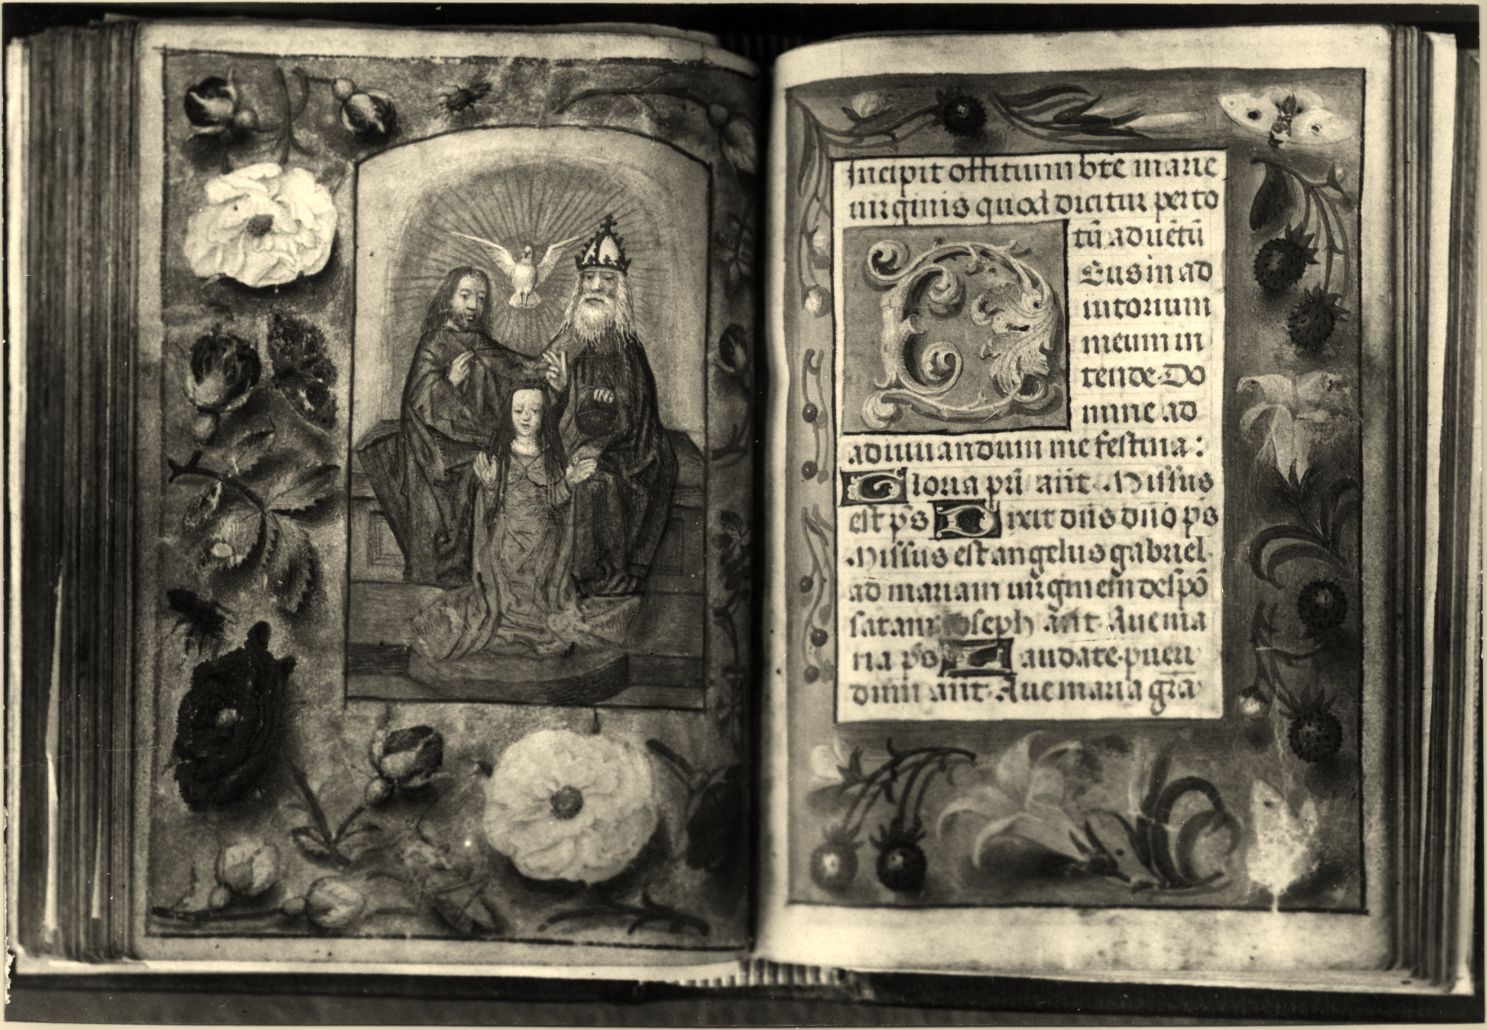 Incipit offitium bte marie
uirginis quod dicitur per to
tū aduētū
Deus in ad
iutorium
meum in
tende. Do
mine ad
adiuuandum me festina :
Gloria pri añt. Missus
est ps Dixit dns dno ps
Missus est angelus gabriel
ad mariam uirginem despō
satam ioseph añt Aue ma
ria ps Laudate pueri
dnm añt. Aue maria gra